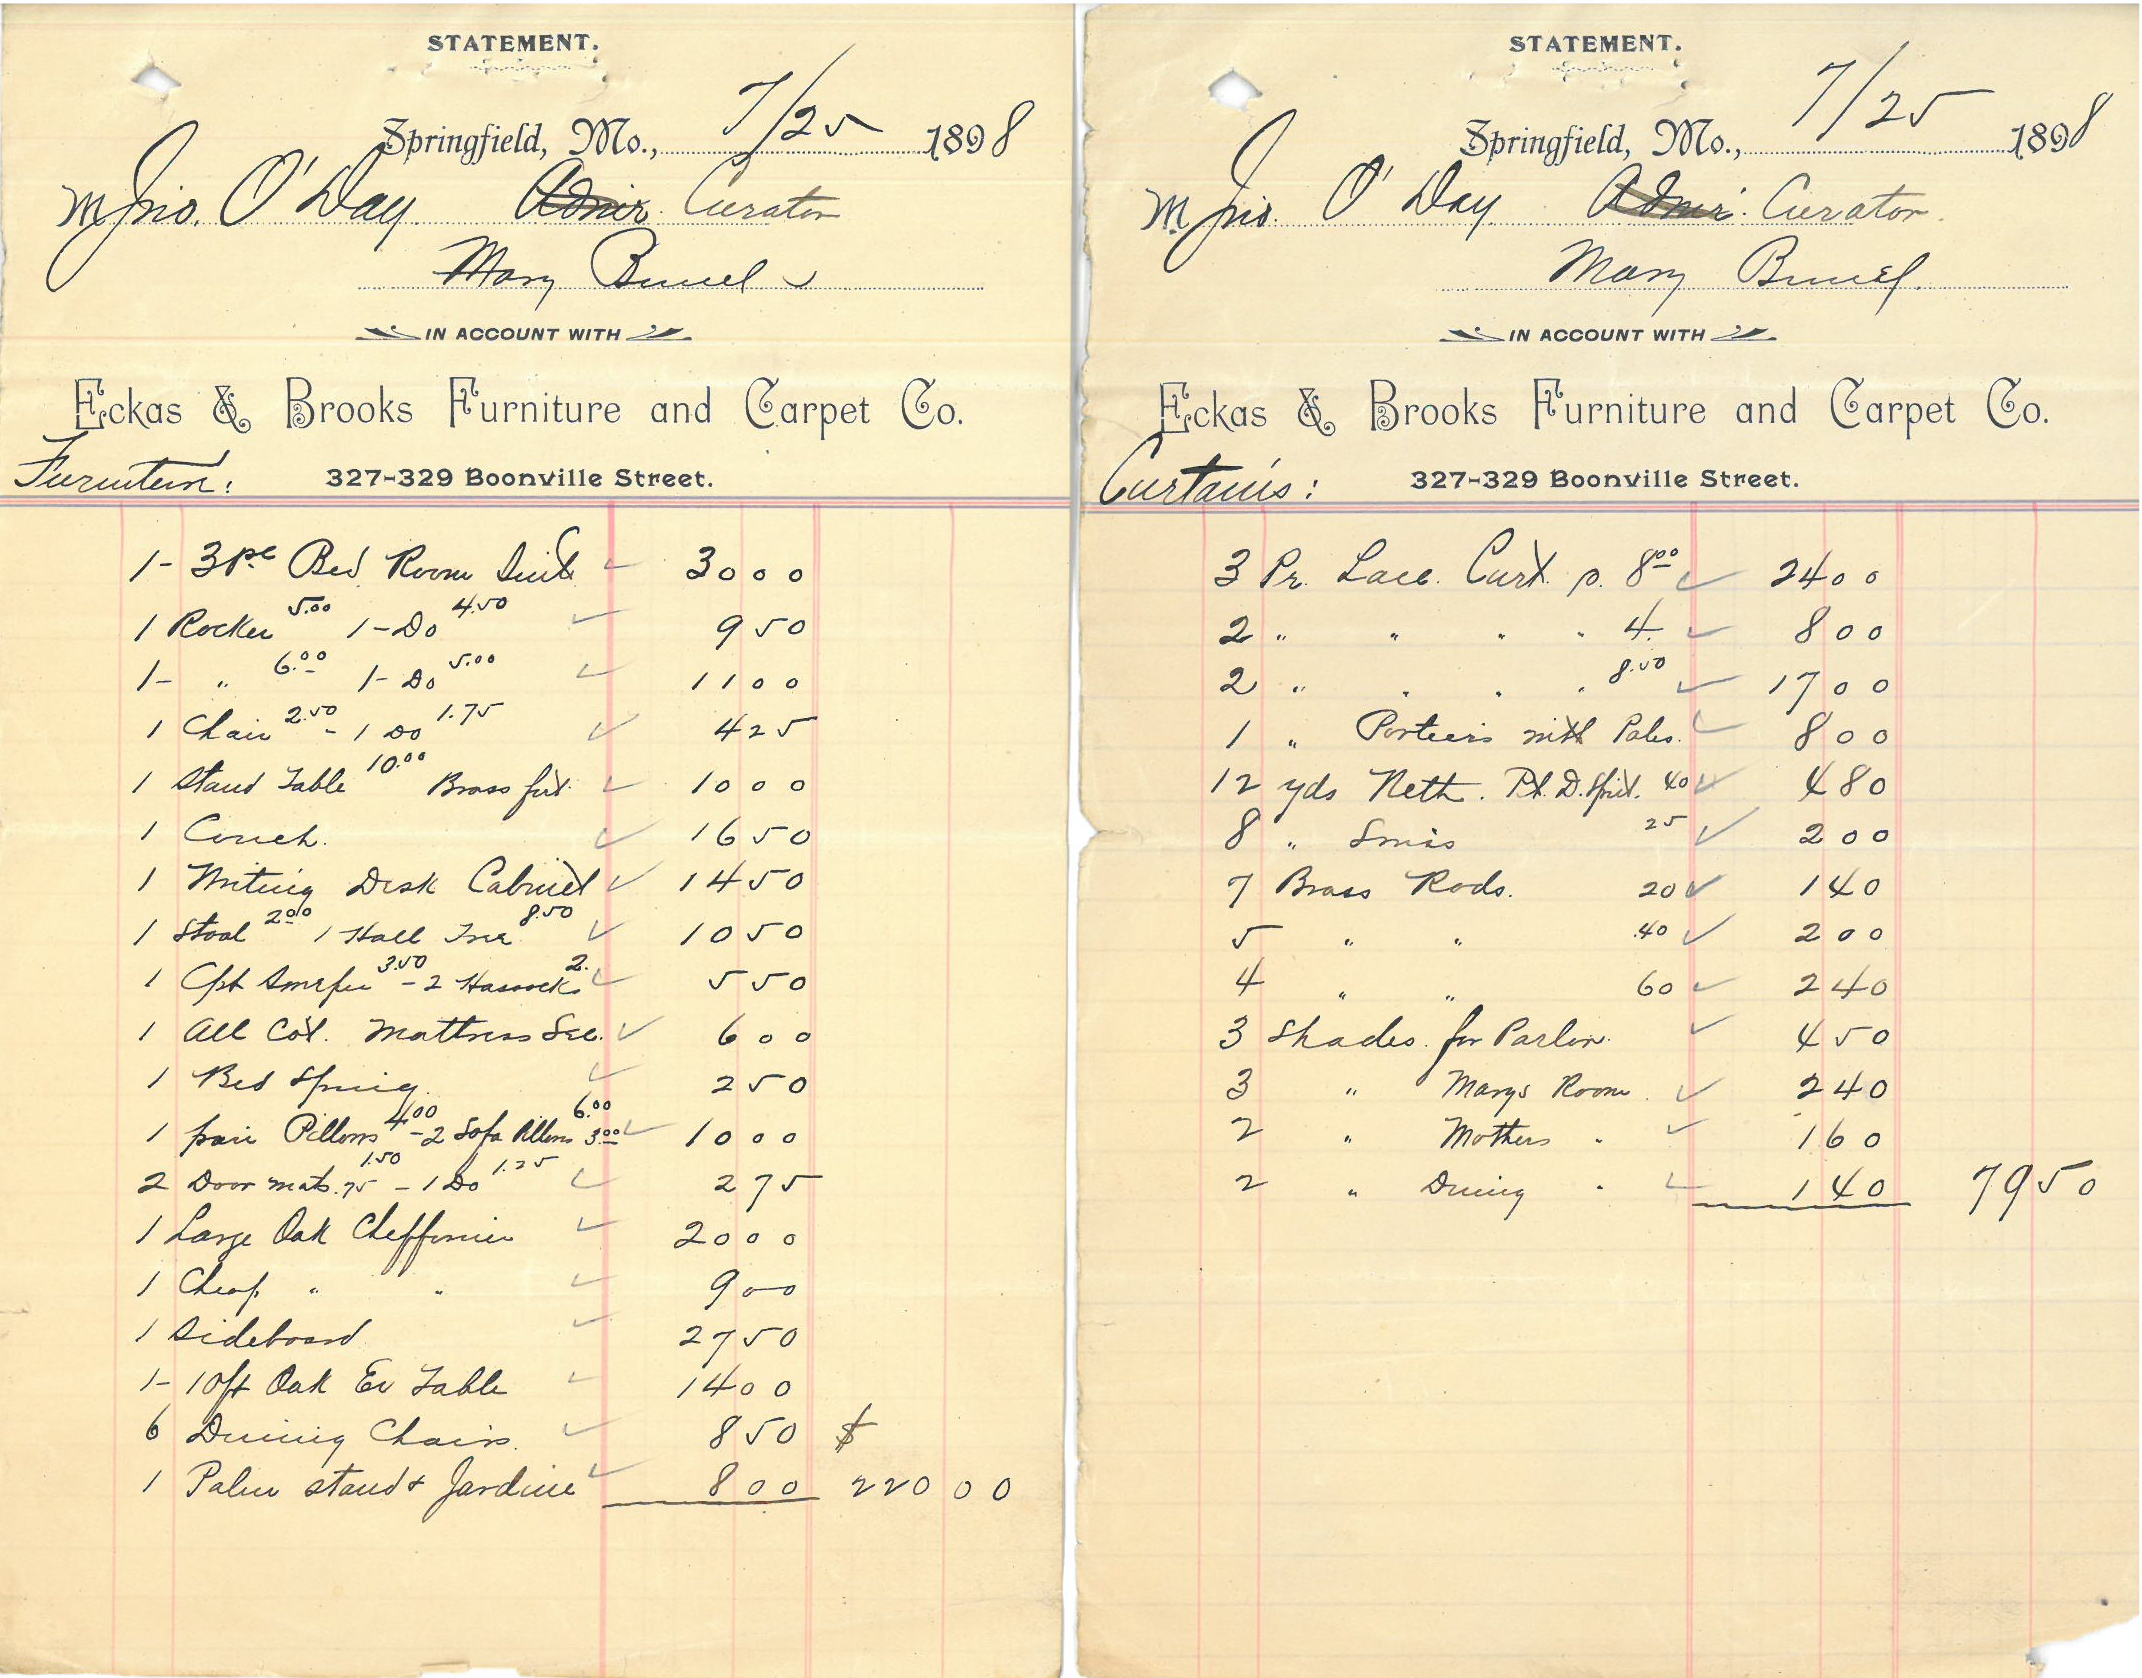 STATEMENT.
Springfield, Mo., 7/25 1898
M Jno. O'Day Admr. Curator
Mary Buuel
IN ACCOUNT WITH
Eckas & Brooks Furniture and Carpet Co.
Furniture: 327-329 Boonville Street.
1- 3pc Bed Room Suit 30 00
1 Rocker 5.00 1-Do 4.50 9 50
1- " 6.00 1-Do 5.00 11 00
1 Chair 2.50 - 1 Do 1.75 4 25
1 Stand Table 10.00 Brass fut. 10 00
1 Couch. 16 50
1 Writing Desk Cabinet 14 50
1 Stool 2.00 1 Hall Tree 8.50 10 50
1 Cpt Sweeper 3.50 - 2 Hassocks 2. 5 50
1 All Cot. Mattress Sec. 6 00
1 Bed Spring 2 50
1 pair Pillows 4.00 - 2 Sofa Pillows 3.00 6.00 10 00
2 Door mats .75 1.50 - 1 Do 1.25 2 75
1 Large Oak Cheffonier 20 00
1 Cheap " " 9 00
1 Sideboard 27 50
1- 10ft Oak Ex Table 14 00
6 Dining Chairs. 8 50 $
1 Palm stand & Jardine 8 00 220 00
STATEMENT.
Springfield, Mo., 7/25 1898
M Jno. O'Day Admr. Curator.
Mary Buuel.
IN ACCOUNT WITH
Eckas & Brooks Furniture and Carpet Co.
Curtains: 327-329 Boonville Street.
3 Pr. Lace. Curt. p. 8.00 24 00
2 " " " " 4. 8 00
2 " " " " 8.50 17 00
1 " Portiers with Poles. 8 00
12 yds Neth. Pt. D. Spit. 40 4 80
8 " Swiss 25 2 00
7 Brass Rods. 20 1 40
5 " " .40 2 00
4 " " 60 2 40
3 Shades for Parlor. 4 50
3 " " Marys Room. 2 40
2 " Mothers " 1 60
2 " Dining " 1 40 79 50